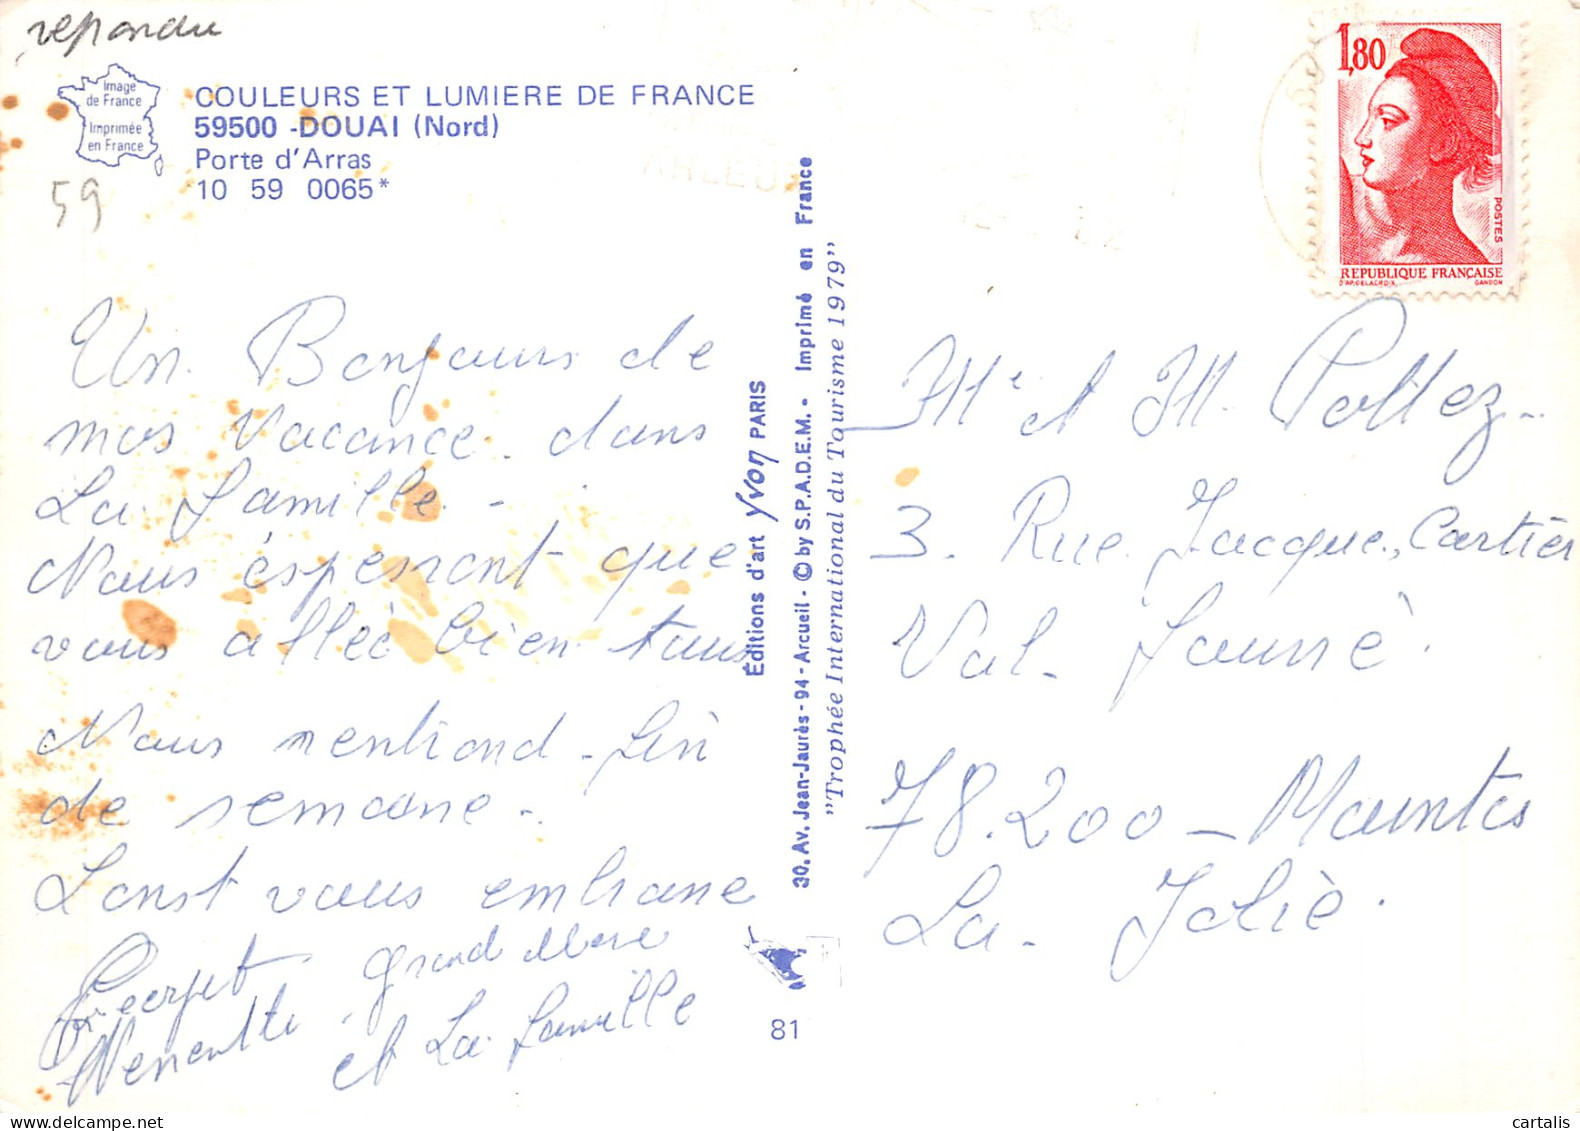 repondu
Image
de France
Imprimée
en France
COULEURS ET LUMIERE DE FRANCE
59500 -DOUAI (Nord)
Porte d'Arras
10 59 0065*
59
Un Bonjours de
mos Vacance. dans
La famille -
Nous éspernont que
vous alléé bien tous
Nous rentrond - fin
de semaine -
vous embrane
grand Mere
et La famille
Éditions d'art Yvon PARIS
30, Av. Jean-Jaurès - 94 - Arcueil - © by S.P.A.D.E.M. • Imprimé en France
"Trophée International du Tourisme 1979"
81
1,80
POSTES
REPUBLIQUE FRANÇAISE
D'AP. DELACROIX
GANDON
Me et M. Pottez -
3. Rue Jacque, Cartier
Val.
78.200 - Mantes
La. Jolie.